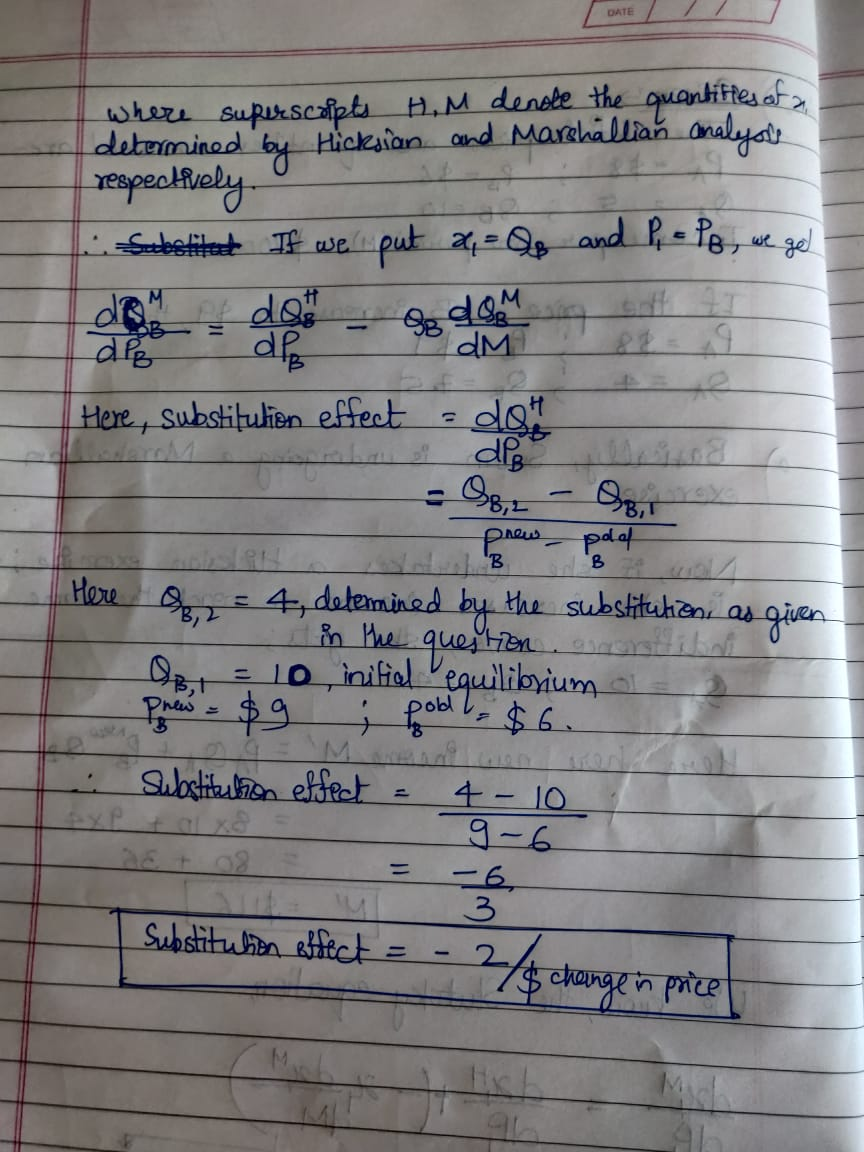 DATE
where superscripts H, M denote the quantities of x₁
determined by Hicksian and Marshallian analysis
respectively.
∴ If we put x₁ = Q_B and P₁ = P_B, we get
dQ_B^M/dP_B = dQ_B^H/dP_B − Q_B dQ_B^M/dM
Here, substitution effect = dQ_B^H/dP_B
= (Q_B,2 − Q_B,1)/(P_B^new − P_B^old)
Here Q_B,2 = 4, determined by the substitution, as given
in the question.
Q_B,1 = 10, initial equilibrium
P_B^new = $9 ; P_B^old = $6.
∴ Substitution effect = (4 − 10)/(9 − 6)
= −6/3
Substitution effect = − 2/$ change in price